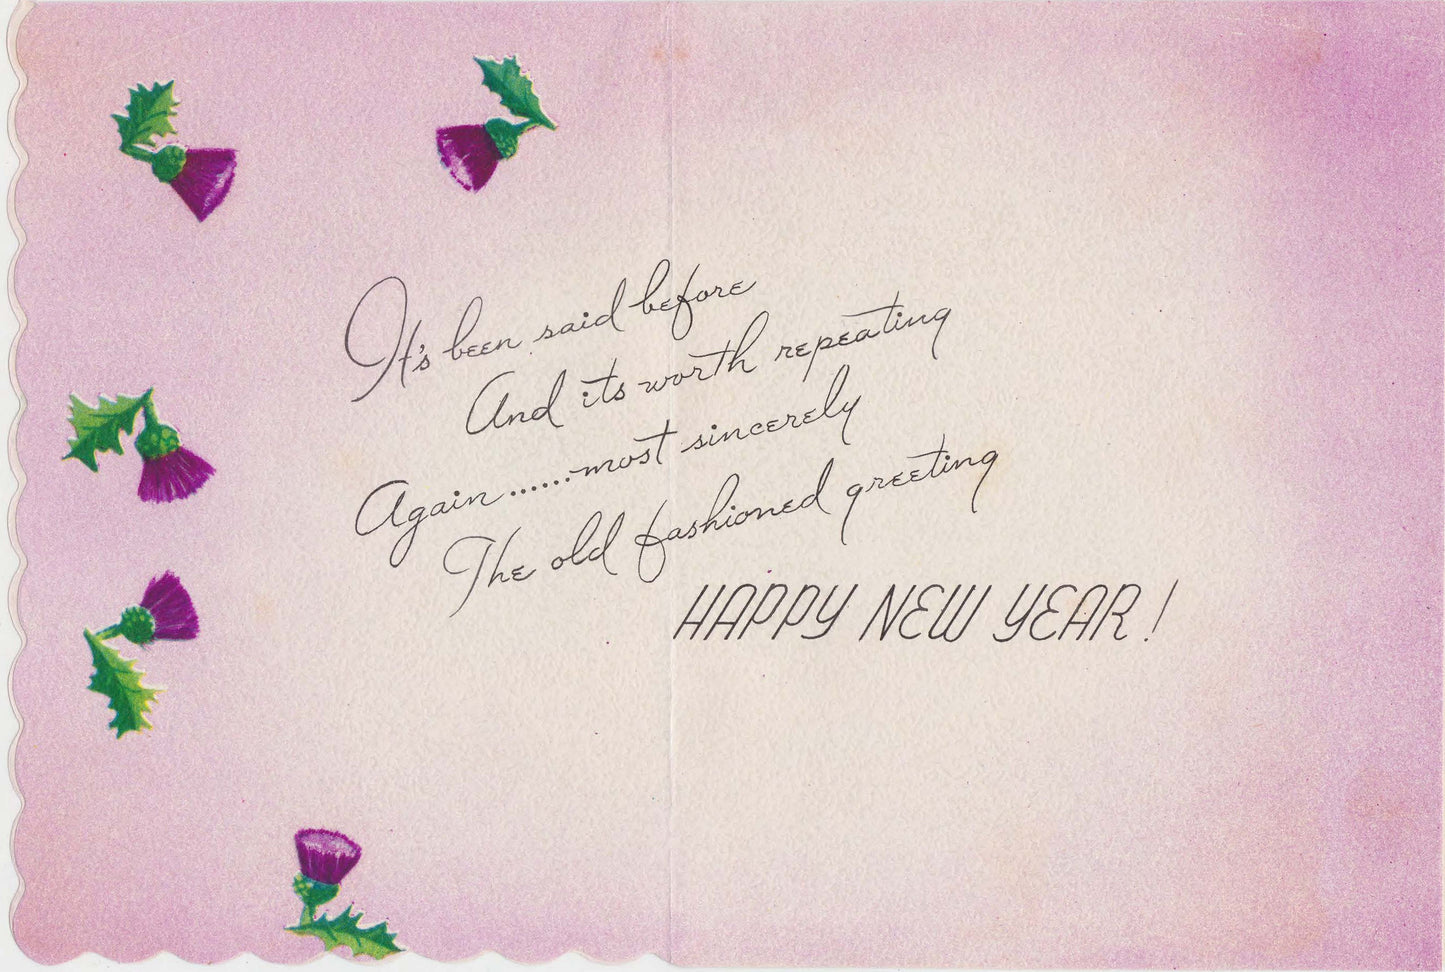 It's been said before
And its worth repeating
Again......most sincerely
The old fashioned greeting
HAPPY NEW YEAR!